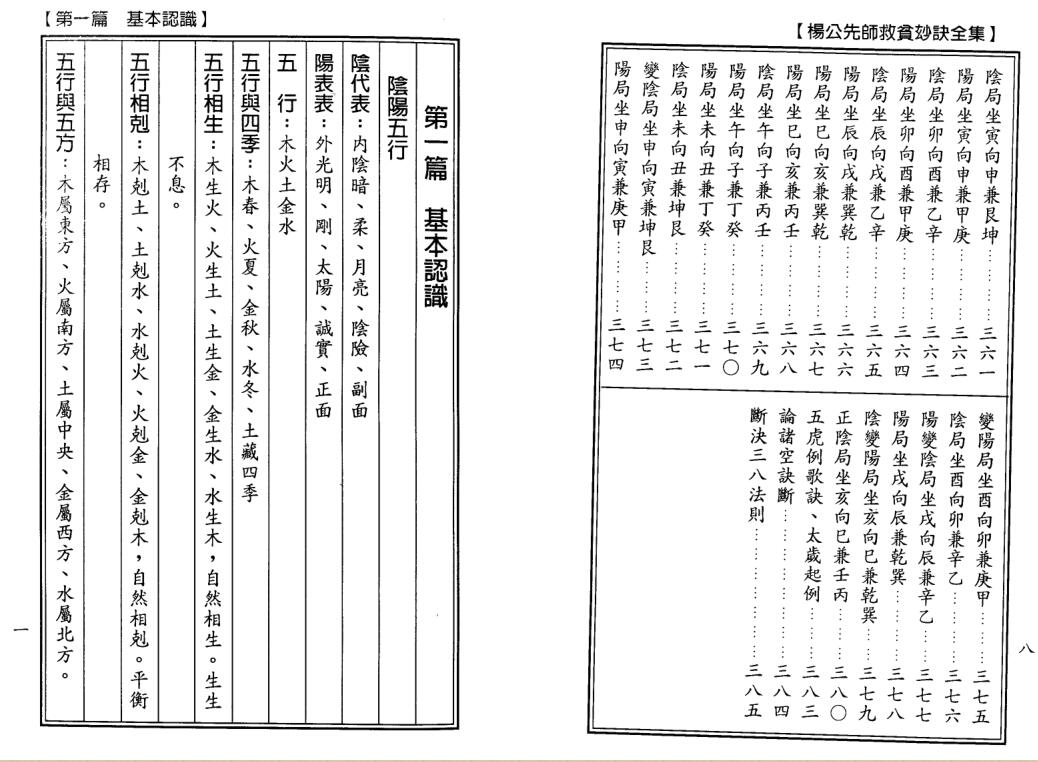 【楊公先師救貧玅訣全集】
陰局坐寅向申兼艮坤…………三六一
陽局坐寅向申兼甲庚…………三六二
陰局坐卯向酉兼乙辛…………三六三
陽局坐卯向酉兼甲庚…………三六四
陰局坐辰向戌兼乙辛…………三六五
陽局坐辰向戌兼巽乾…………三六六
陽局坐巳向亥兼巽乾…………三六七
陽局坐巳向亥兼丙壬…………三六八
陰局坐午向子兼丙壬…………三六九
陽局坐午向子兼丁癸…………三七〇
陽局坐未向丑兼丁癸…………三七一
陰局坐未向丑兼坤艮…………三七二
變陰局坐申向寅兼坤艮………三七三
陽局坐申向寅兼庚甲…………三七四
變陽局坐酉向卯兼庚甲………三七五
陰局坐酉向卯兼辛乙…………三七六
陽變陰局坐戌向辰兼辛乙……三七七
陽局坐戌向辰兼乾巽…………三七八
陰變陽局坐亥向巳兼乾巽……三七九
正陰局坐亥向巳兼壬丙………三八〇
五虎例歌訣、太歲起例………三八三
論諸空訣斷……………………三八四
斷決三八法則…………………三八五
八
【第一篇 基本認識】
第一篇 基本認識
陰陽五行
陰代表：內陰暗、柔、月亮、陰險、副面
陽表表：外光明、剛、太陽、誠實、正面
五 行：木火土金水
五行與四季：木春、火夏、金秋、水冬、土藏四季
五行相生：木生火、火生土、土生金、金生水、水生木，自然相生。生生
不息。
五行相剋：木剋土、土剋水、水剋火、火剋金、金剋木，自然相剋。平衡
相存。
五行與五方：木屬東方、火屬南方、土屬中央、金屬西方、水屬北方。
一